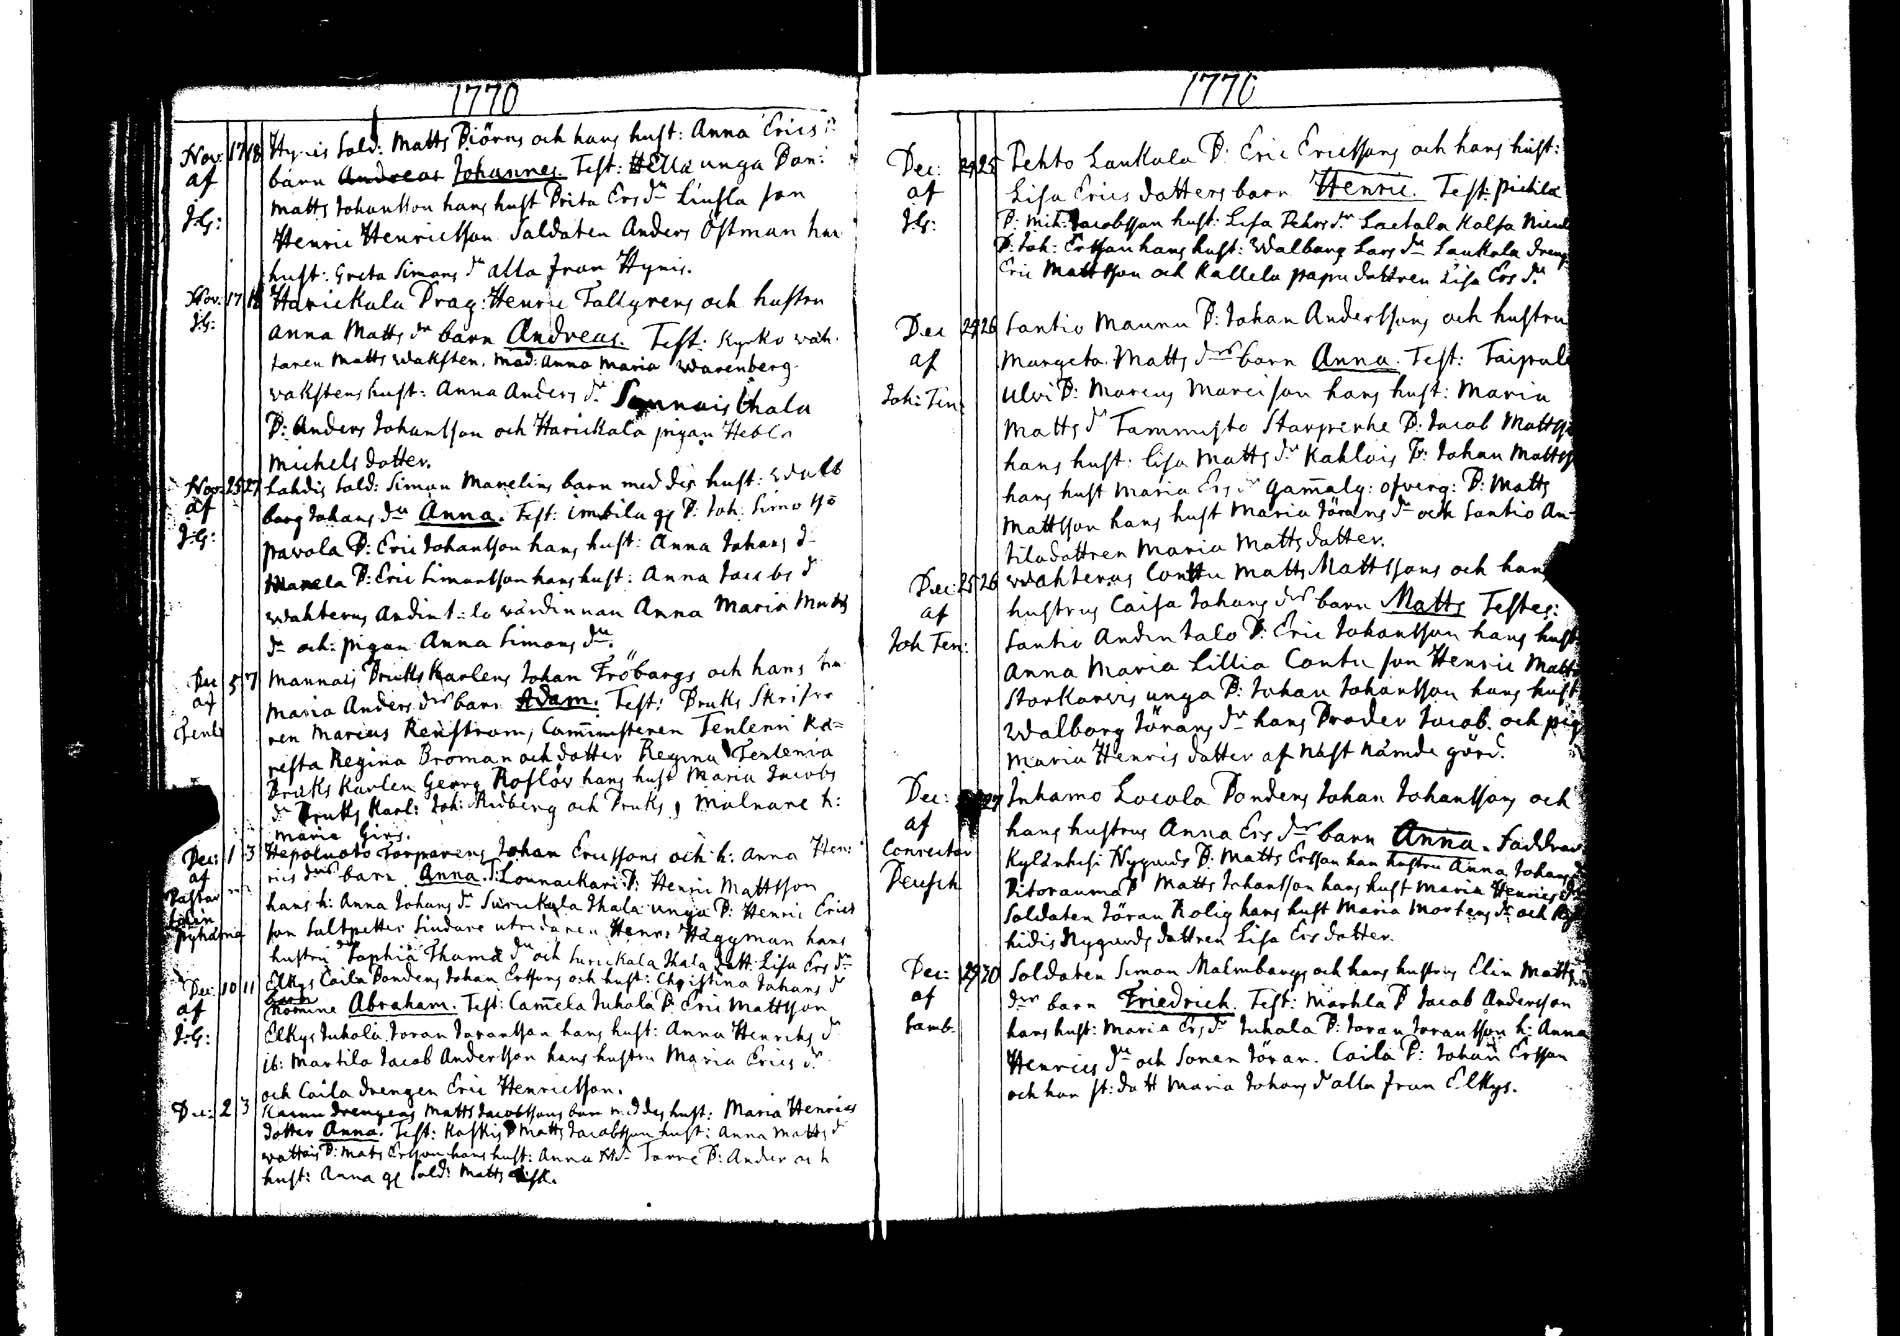 1770
Nov. 17 18 Hynis Sold: Matts Biörns och hans hust: Anna Erics d:
af barn Andreas Johannes. Test: Hella unga Bon:
J:G: Matts Johansson hans hust Brita Ers dr Liusla son
Henric Henricsson Soldaten Anders Östman hans
hust: Greta Simons dr alla från Hynis.
Nov. 17 18 Harickala Drag: Henric Tallgrens och hustru
J:G: Anna Matts dr barn Andreas. Test. Kyrko väk-
taren Matts Waksten. Mad: Anna Maria Warenberg.
Wakstens hust: Anna Anders dr Sonnais Ihala
B: Anders Johansson och Harickala pigan Hebla
Michels dotter.
Nov. 25 27 Lahdis Sold: Simon Manelins barn med dess hust: Walb
af borg Johans dr Anna. Test: Imbila gl B: Joh: Simo Yö
J:G: pavola B: Eric Johansson hans hust: Anna Johans d
Manela B: Eric Simonsson hans hust: Anna Jacobs d
Wahterus Andin t-lo wärdinnan Anna Maria Matts
dr och: pigan Anna Simons dr.
Dec 5 7 Mannais Bruks Karlens Johan Fröbergs och hans hu
af Maria Anders drs barn Adam. Test: Bruks Skrifva
Tenl: ren Marcus Renström, Comministeren Tenlenii Kä=
resta Regina Broman och dotter Regina Tenlenia
Bruks Karlen Georg Koflöv hans hust Maria Jacobs
dr Bruks Karl: Joh: Ridberg och Bruks Molnare h:
Maria Girs.
Dec: 1 3 Hepoluoto Torparens Johan Ericssons och h: Anna Hen:
af rics drs barn Anna. T: Lounackari B: Henric Mattsson
Pastor hans h: Anna Johans dr Surickala Ihala unga B: Henric Erics
son Saltpetter Siudare utridaren Henr: Hägyman hans
hustru Sophia Thomæ dr och Surickala Ihala dott: Lisa Ers dr
Dec: 10 11 Elkys Caila Bondens Johan Erssons och hust: Christina Johans d
af barn nomine Abraham. Test: Cam̄ela Juhola B: Eric Mattsson
J:G: Elkys Juhola Joran Joransson hans hust: Anna Henrichs d
ib: Martila Jacob Andersson hans hustru Maria Erics dr
och Caila drengen Eric Henricsson.
Dec: 2 3 Kaunu drengens Matts Jacobssons barn med dess hust: Maria Henrics
dotter Anna. Test: Kaskis B Matts Jacobsson hust: Anna Matts d
Wattois B: Mats Ersson hans hust: Anna M dr Torre B: Ander och
hust: Anna gl Sold: Matts
1770
Dec: 24 25 Pehto Laukola B: Eric Ericssons och hans hust:
af Lisa Erics dotters barn Henric. Test: Pietila
J:G: B: Mich: Jacobsson hust: Lisa Pehrs dr Laetala Kalfa Nicul
B: Joh: Ersson hans hust: Walborg Lars dr Laukola dreng
Eric Mattsson och Kallela papin dottren Lisa Ers dr
Dec 24 26 Santio Maunu B: Johan Anderssons och hustru
af Margeta Matts drs barn Anna. Test: Taipale
Joh: Ten: Ulvi B: Marcus Marcisson hans hust: Maria
Matts dr Tammisto Storprenke B: Jacob Mattsso
hans hust: Lisa Matts dr Kahlois B: Johan Mattss
hans hust Maria Ers dr Gam̄alg: ofverg: B: Matts
Mattsson hans hust Maria Jörans dr och Santio An-
tila dottren Maria Matts dotter.
Dec: 25 26 Wahterus Conttu Matts Mattssons och hans
af hustrus Caisa Johans drs barn Matts Testes:
Joh Ten: Santio Andin talo B: Eric Johansson hans hust
Anna Maria Lillia Contu son Henric Matts
Storkarers unga B: Johan Johansson hans hust
Walborg Jörans dr hans Broder Jacob. och pig
Maria Henrics dotter af näst nämde gård.
Dec: 27 Inhamo Locola Bondens Johan Johanssons och
af hans hustrus Anna Ers drs barn Anna. Faddrar
Conrector Kylänkesi Nyguds B: Matts Ersson han hustru Anna Johans d
Deutsch Pitorauma B Matts Johansson hans hust Maria Henrics dr
Soldaten Jöran Rolig hans hust Maria Mortens dr och
hidis Nyguds dottren Lisa Ers dotter.
Dec: 29 30 Soldaten Simon Malmbergs och hans hustrus Elin Matts
af drs barn Friedrich. Test: Markla B Jacob Andersson
Samb. hans hust: Maria Ers dr Juhala B: Joran Joransson h: Anna
Henrics dr och Sonen Jöran. Caila B: Johan Ersson
och han st: dott Maria Johans dr alla från Elkys.